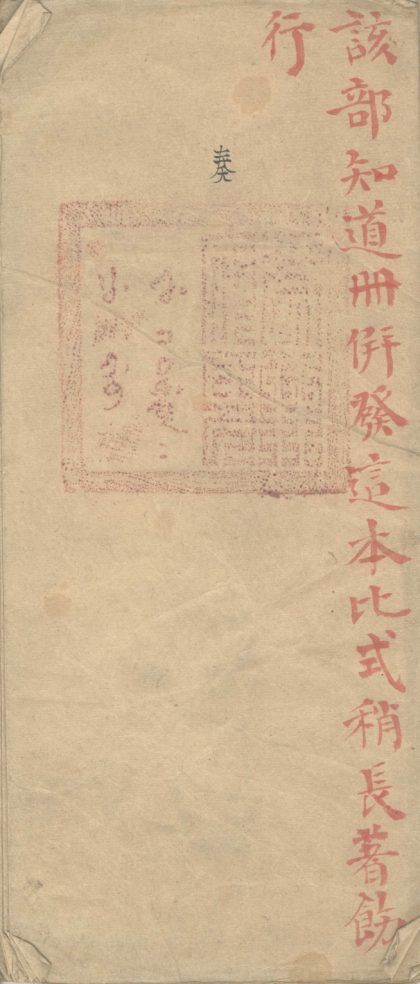 該部知道冊併發這本比式稍長著飭
行
奏